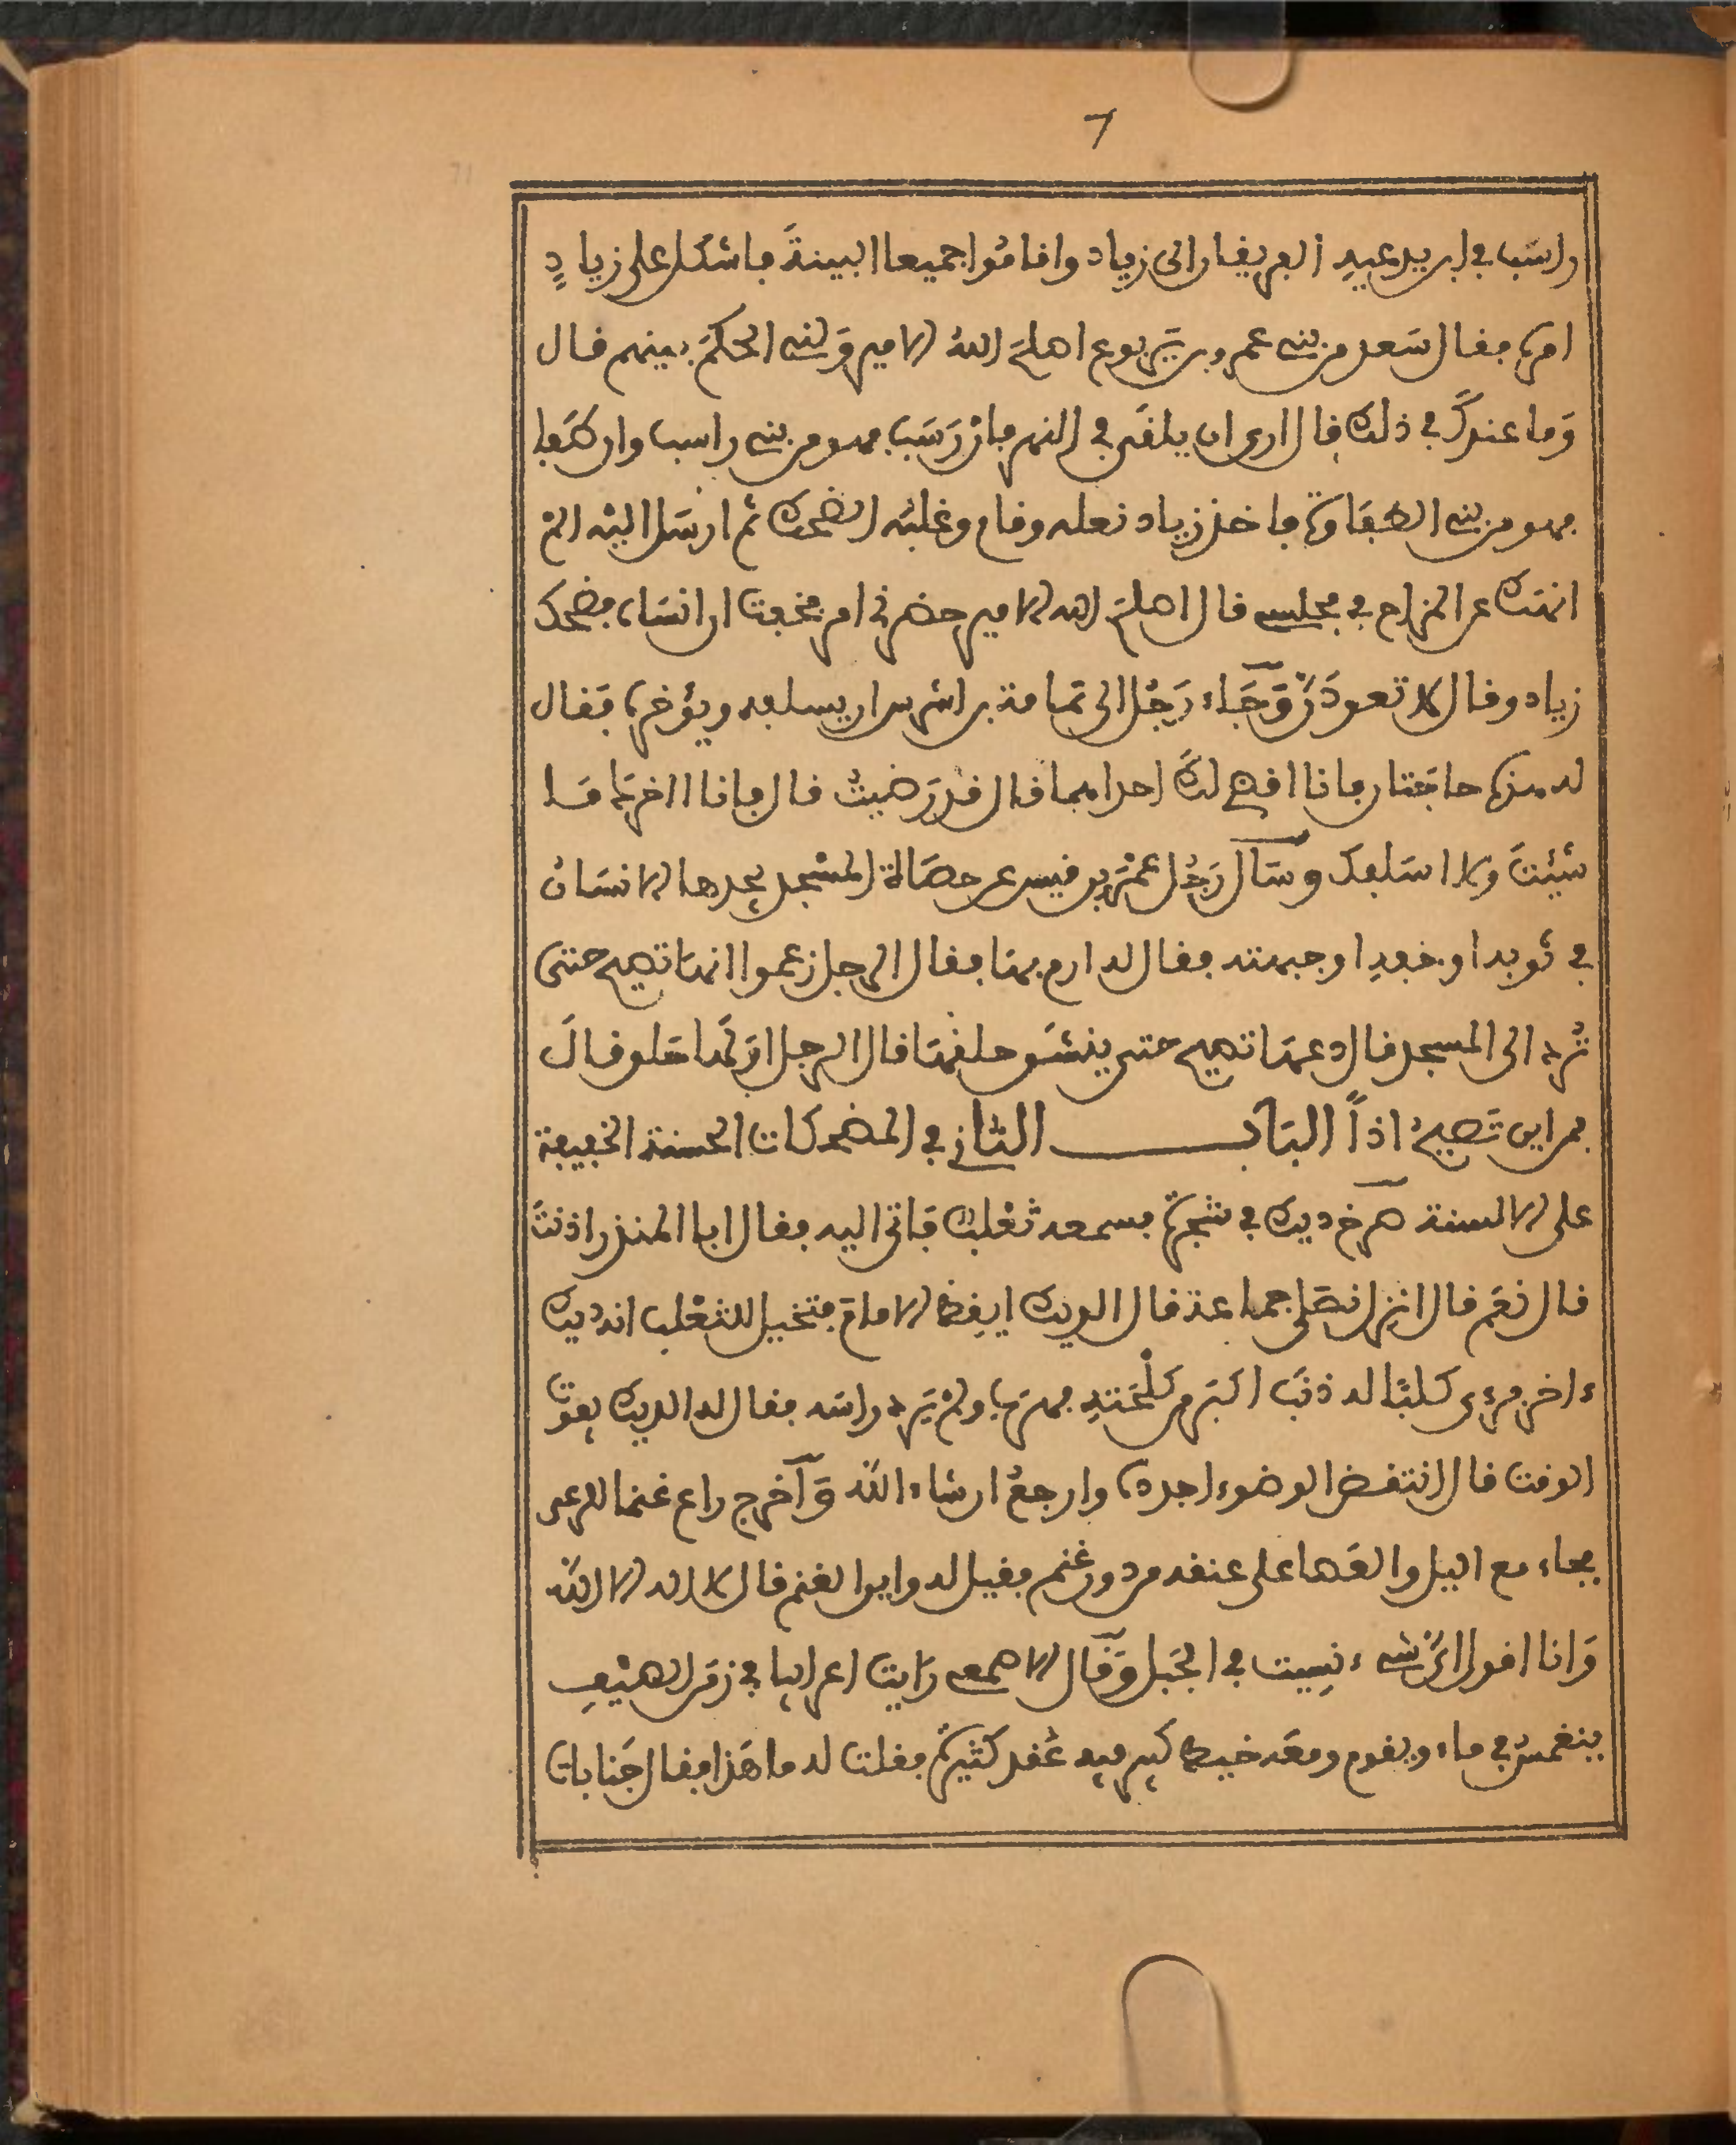 7
راسب في ابن يدعيه الفريقان الى زياد واقاموا جميعا البينةَ فاشكل على زيادٍ
امره فقال سَعد من بني عمرو بن يَربوع اصلح اللهُ الامير وَلّني الحكمَ بينهم قال
وَما عندكَ في ذلك قال ارى ان يلقَى في النهر فانْ رَسَب فهو من بني راسب وان طَفا
فهو من بني الطُفَاوة فاخذ زياد نعله وقام وغلبَه الضحك ثم ارسَل اليْه المْ
انهَك عن المزاح في مجلسي قال اصلحَ الله الامير حضرني امر فخفت ان انسَاه فضحك
زياد وقال لا تعودَنّ وَجَاء رَجُل الى ثمامة بن اشرس ان يسلفه ويؤخره فَقال
له هذه حاجَتان فانا اقضي لك احداهما قال قد رَضيتُ قال فانا اؤخرك مَا
شئتَ ولا اسَلفك وسَأل رَجُل عَمْرو بن قيس عن حصَاة المسْجد يجدها الانسَانُ
في ثوبه او خفه او جبهته فقال له ارم بها فقال الرجل زعموا انها تصيح حتى
تُرد الى المسجد قال دعها تصيح حتى ينشَق حلقها قال الرجل اوَ لَها حَلق قالَ
فمن اين تَصيحُ اذاً البَاب الثاني في المضحكات الحسنة الخفيفة
على الالسنة صَرخ ديك في شجرة فسمعه ثعْلب فَاتى اليه فقال ابا المنذر اذنتَ
قال نعَم قال انزل نصَلي جماعة قال الديك ايقِظ الامامَ فتخيل للثعْلب انه ديك
ءاخر فرءى كلبًا له ذنَب اكبَر من كلْحَتهِ فهرَب ولمْ يَرد راسَه فقال له الديك يفوت
الوقت قال انتقض الوضوء اجدده وارجعُ ان شاء اللّه وَآخرج راع غنما للرعى
فجاء مع اليل والقَها على عنقه من دون غنم فقيل له واين الغنم قال لا اله الا اللّه
وَانا اقول ايّ شيء نِسيت في الجَبل وَقَال الاصمعي رَايت اعرابيا في زمَن الصيْفِ
ينغمسُ في ماء ويقوم ومعَه خيط كبير فيه عُقد كثيرة فقلت له ما هَذا فقال جَنابات